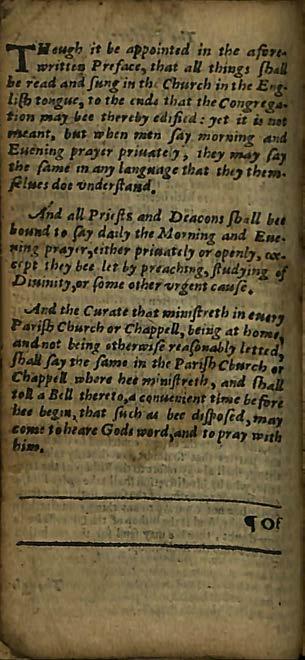 THough it be appointed in the afore-
written Preface, that all things ſhall
be read and ſung in the Church in the Eng-
liſh tongue, to the ende that the Congrega-
tion may bee thereby edified: yet it is not
meant, but when men ſay morning and
Euening prayer priuately, they may ſay
the ſame in any language that they them-
ſelues doe vnderſtand.
And all Prieſts and Deacons ſhall bee
bound to ſay daily the Morning and Eue-
ning prayer, either priuately or openly, ex-
cept they bee let by preaching, ſtudying of
Diuinity, or ſome other vrgent cauſe.
And the Curate that miniſtreth in euery
Pariſh Church or Chappell, being at home,
and not being otherwiſe reaſonably letted,
ſhall ſay the ſame in the Pariſh Church or
Chappell where hee miniſtreth, and ſhall
toll a Bell thereto, a conuenient time before
hee begin, that ſuch as bee diſpoſed, may
come to heare Gods word, and to pray with
him.